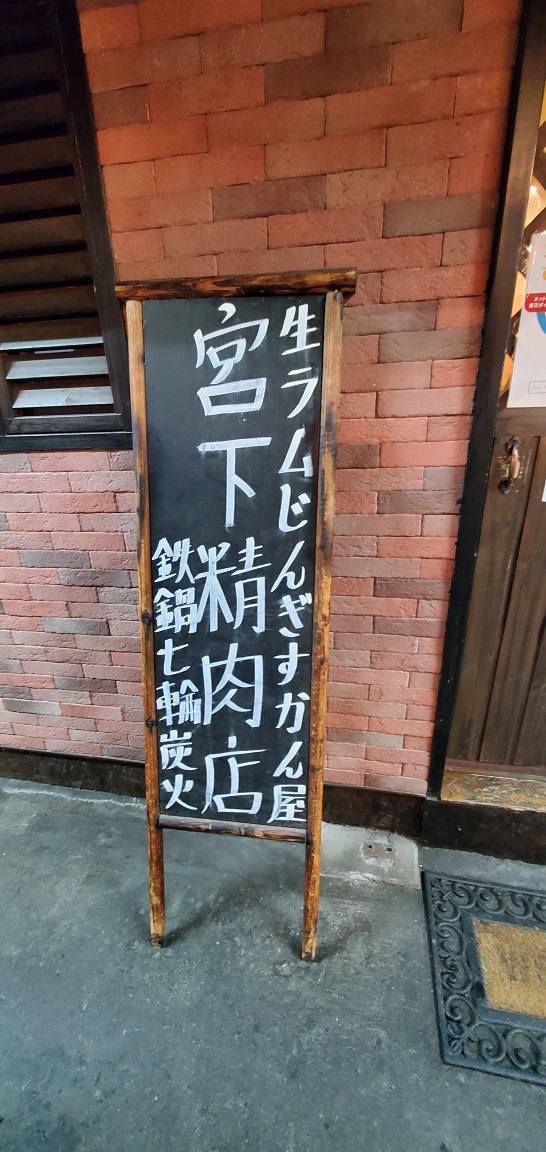 生ラムじんぎすかん屋
宮下精肉店
鉄鍋七輪炭火